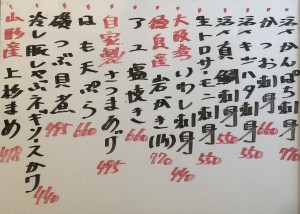 活〆かんぱち刺身 770
かつお刺身 660
活〆キジハタ刺身 550
活〆真鯛刺身 550
生トロサーモン刺身 550
大阪産いわし刺身 440
徳島産岩かき(1ケ) 770
アユ塩焼き 660
自家製さつまあげ 495
はも天ぷら 660
磯つぶ貝煮 495
冷し豚しゃぶネギソースがけ 440
山形産上杉まめ 418